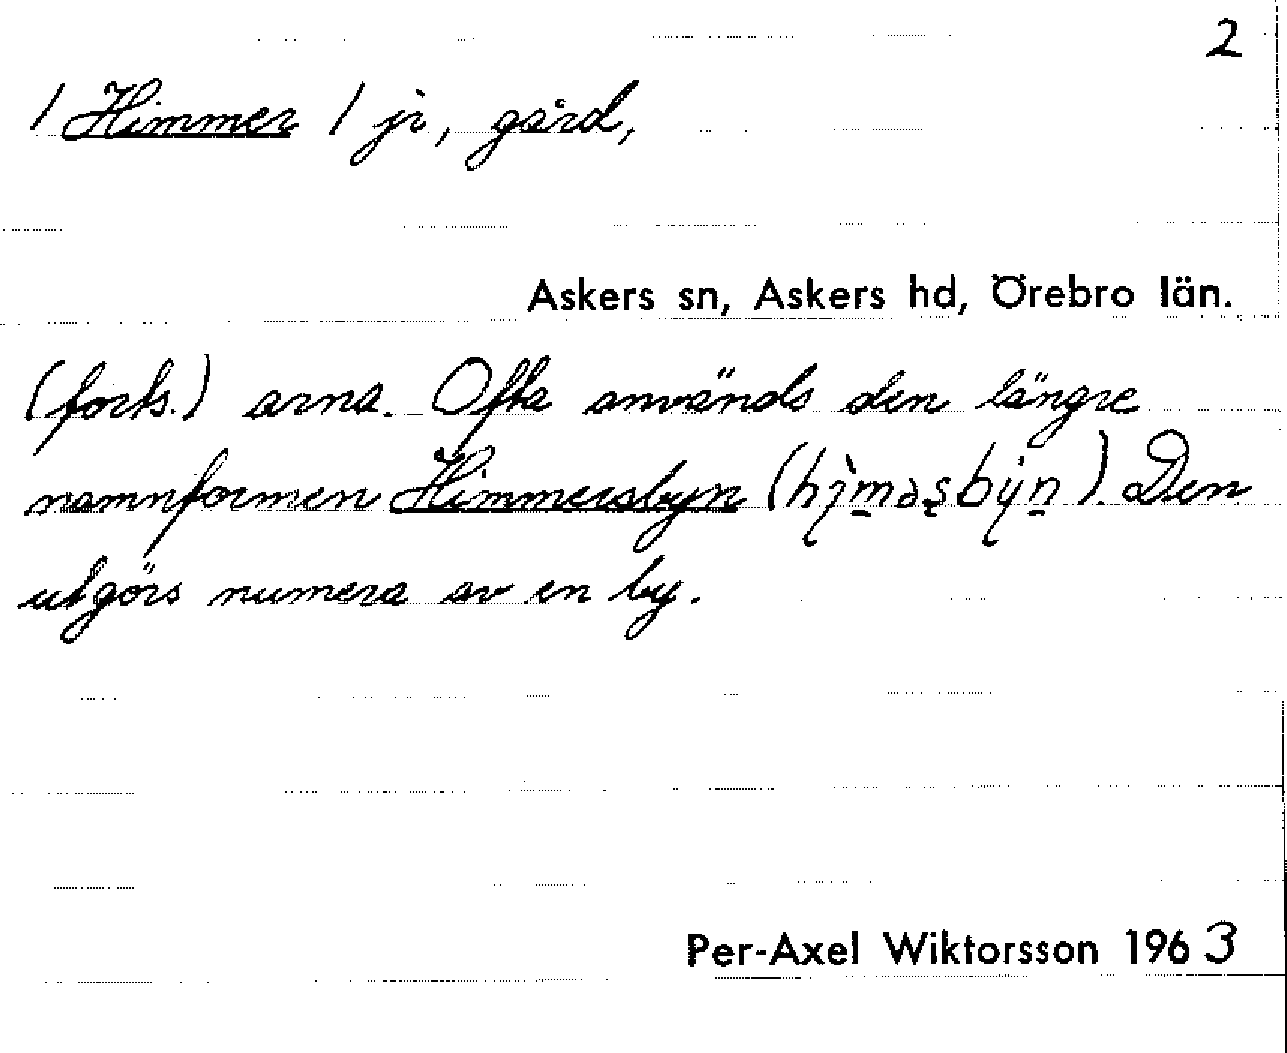 2
/ Himmer / jr, gård,
Askers sn, Askers hd, Örebro län.
(forts.) arna. Ofta används den längre
namnformen Himmersbyn ( ). Den
utgörs numera av en by.
Per-Axel Wiktorsson 1963